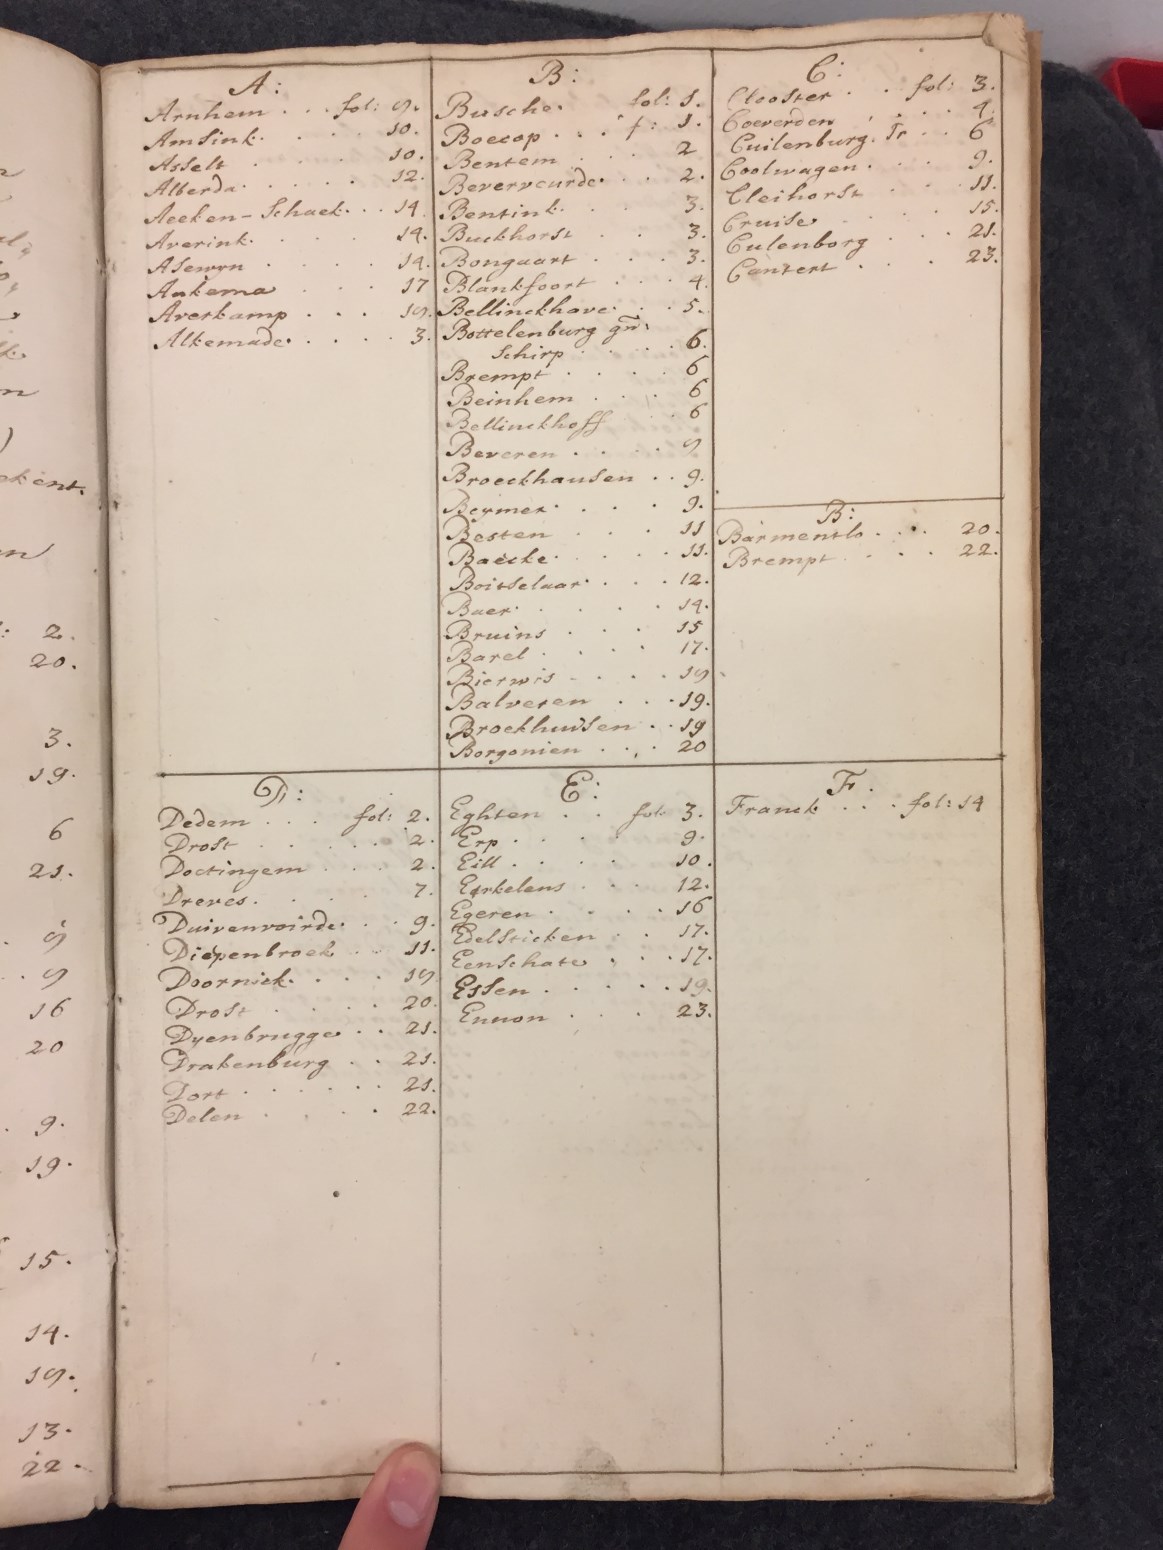 A:
Arnhem . . . fol: 9.
Amsink . . . 10.
Asselt . . . . 10.
Alberda . . . . . 12.
Aeeken-Schaek . . 14.
Averink . . . . 14.
Asewyn . . . . 14.
Aukema . . . 17
Averkamp . . . 19.
Alkemade . . . . 3.
B:
Busche. fol: 1.
Boecop . . . f: 1.
Bentem . . . 2
Beververde . . 2.
Bentink . . . 3.
Buckhorst . . 3.
Bongaart . . . 3.
Blankfoort . . . 4.
Bellinckhave . . 5.
Bottelenburg gñ:
Schirp . . . . 6.
Brempt . . . . 6
Beinhem . . . 6
Bellinckhoff . . 6
Beveren . . . . 9
Broeckhausen . . 9.
Beymer . . . . 9.
Besten . . . 11
Baecke . . . . . 11.
Boitselaar . . . 12.
Baer . . . . . 14.
Bruins . . . 15
Barel . . . . 17.
Bierwis . . . . 19
Balveren . . . 19.
Broekhuisen . . 19
Borgonien . . . 20
C:
Clooster . . fol: 3.
Coeverden . . . 4.
Cuilenburg. Tr . . 6
Coolwagen . . . 9.
Cleihorst . . . 11.
Cruise . . . . 15.
Culenborg . . . 21.
Centert . . . 23.
B:
Barmentlo . . . . 20.
Brempt . . . . 22.
D:
Dedem . . . fol: 2.
Drost . . . . . 2.
Doetingem . . . 2.
Dreves. . . . . 7.
Duivenvoirde . . 9.
Diepenbroek . . 11.
Doornick. . . . 19
Drost . . . . 20.
Dyenbrugge . . 21.
Drakenburg . . 21.
Dort . . . . . . 21.
Delen . . . . 22.
E:
Eghten . . fol: 3.
Erp . . . . 9.
Eill . . . . 10.
Eerkelens . . . 12.
Egeren . . . . 16
Edelsticken . . 17.
Eenschate . . . 17.
Essen . . . . . 19.
Ennon . . . 23.
F.
Franck . . . fol: 14